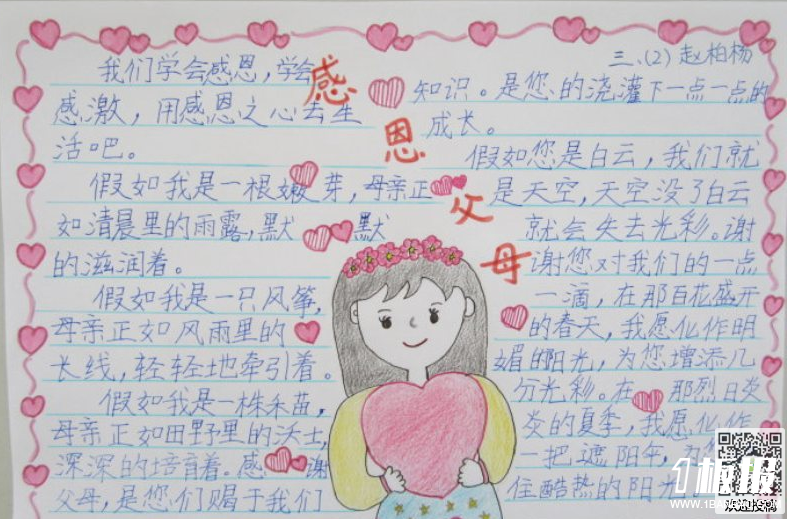 三、(2) 赵柏杨
感
恩
父
母
我们学会感恩，学会
感激，用感恩之心去生
活吧。
假如我是一根嫩芽，母亲正
如清晨里的雨露，默默
的滋润着。
假如我是一只风筝，
母亲正如风雨里的
长线，轻轻地牵引着。
假如我是一株禾苗，
母亲正如田野里的沃土，
深深的培育着。感谢
父母，是您们赐于我们
知识。是您的浇灌下一点一点的
成长。
假如您是白云，我们就
是天空，天空没了白云
就会失去光彩。谢
谢您对我们的一点
一滴，在那百花盛开
的春天，我愿化作明
媚的阳光，为您增添几
分光彩。在那烈日炎
炎的夏季，我愿化作
一把遮阳伞，为
住酷热的阳光
板报